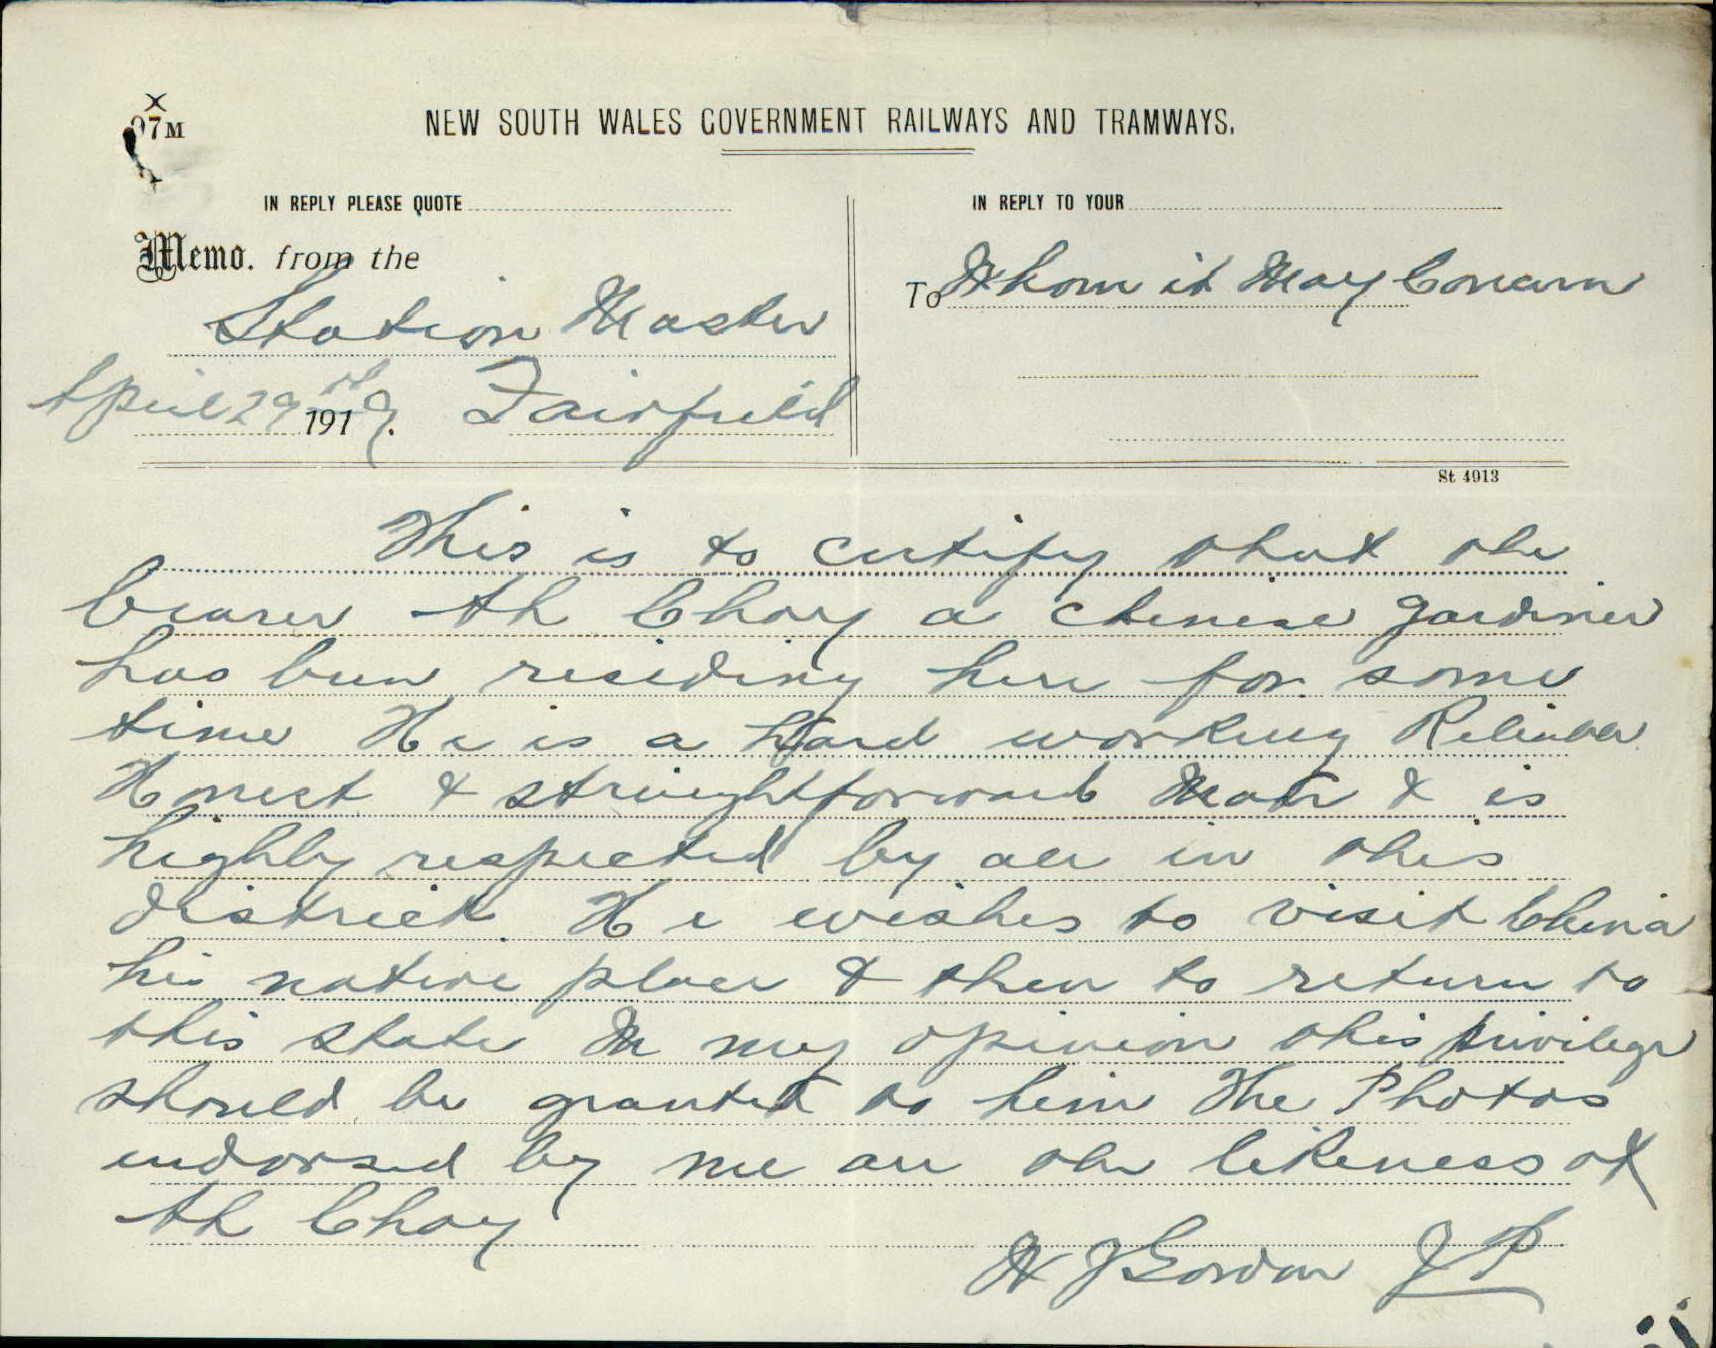 97M
NEW SOUTH WALES GOVERNMENT RAILWAYS AND TRAMWAYS.
IN REPLY PLEASE QUOTE
IN REPLY TO YOUR
Memo. from the
Station Master
To Whom it May Concern
April 29 1919. Fairfield
St 4913
This is to certify that the
bearer Ah Choy a chinese gardiner
has been residing here for some
time He is a hard working Reliable
Honest & straightforward Man & is
highly respected by all in this
district. He wishes to visit China
his native place & then to return to
this state In my opinion this privilege
should be granted to him The Photos
endorsed by me are the likeness of
Ah Choy
W J Gordon J P